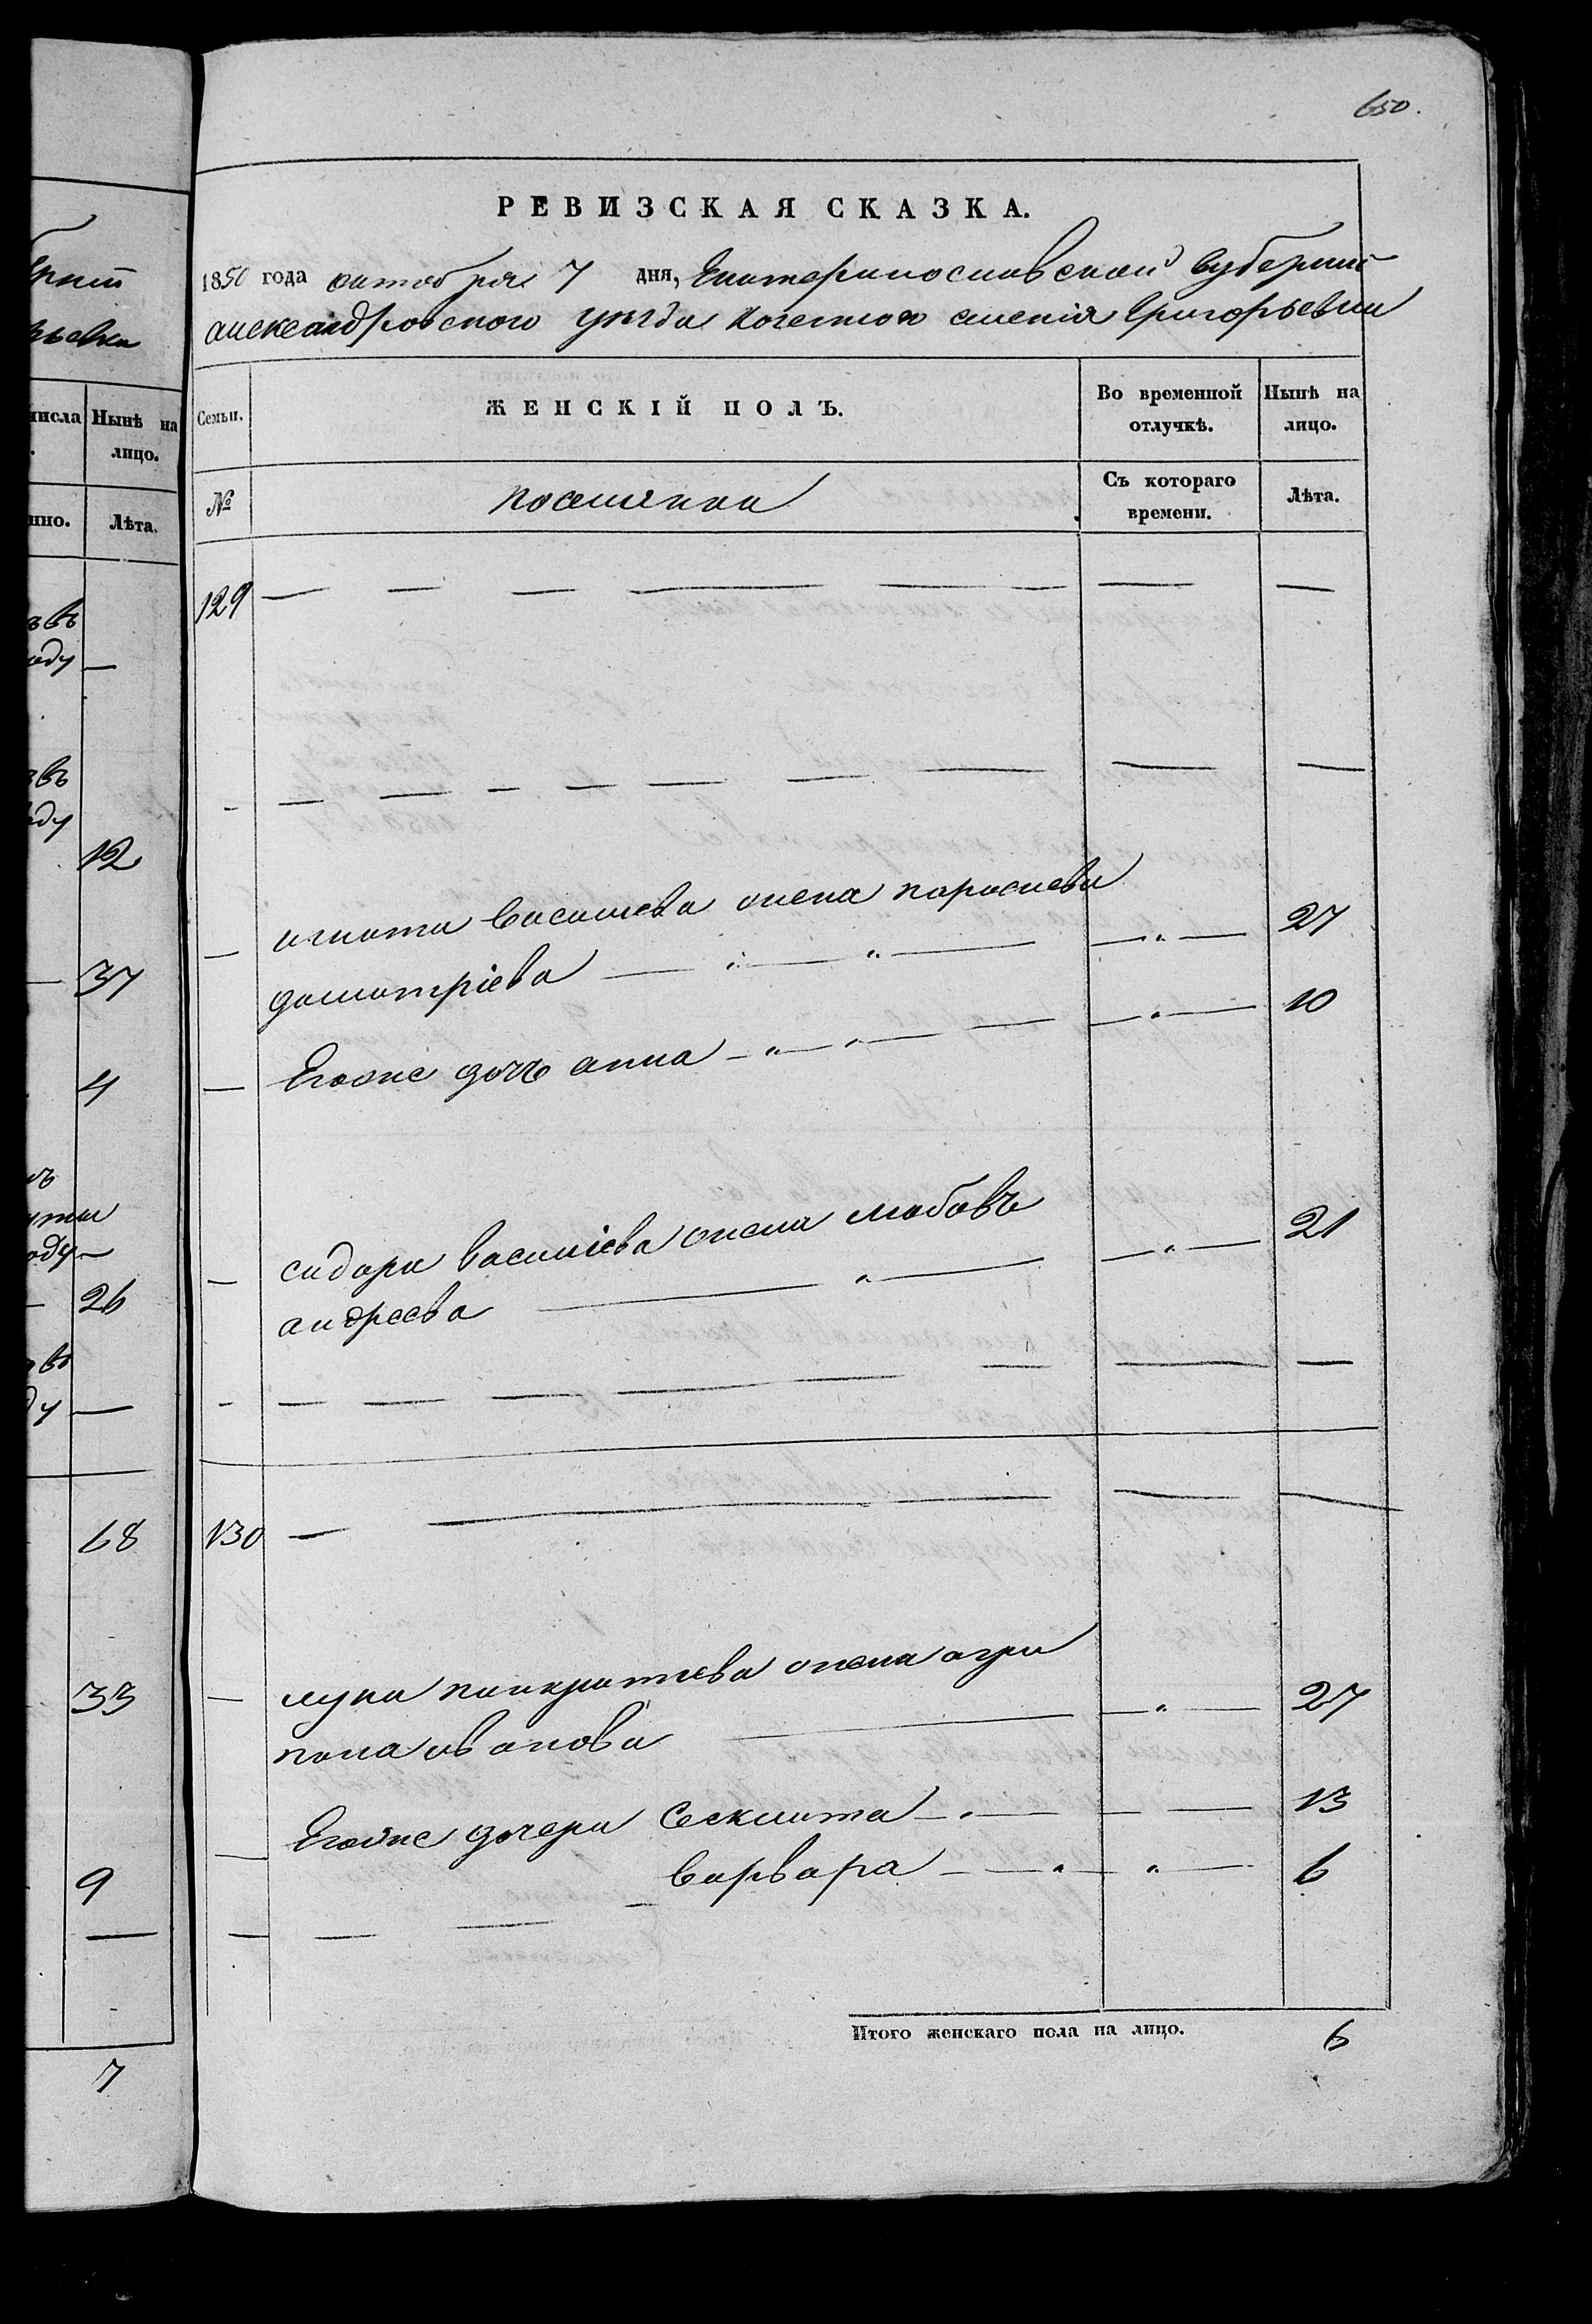 650.
РЕВИЗСКАЯ СКАЗКА.
1850 года октобря 7 дня, Екатеринославской Губернии
александровского уезда казенного селенія Григорьевки
Семьи.
ЖЕНСКІЙ ПОЛЪ.
Во временной отлучкѣ.
Нынѣ на лицо.
№
поселянки
Съ котораго времени.
Лѣта.
129 — — — — — — —
- — — — — — — — —
— игната василева жена параскева
даматріева — " — " — — " — 27
— Егоже дочь анна — " — " — — — " — 10
— сидора василіева жена любовъ
андреева — " — — " — 21
- — — — — — — —
130 — — — —
— лука панкратева жена агри
пина иванова — — " — 27
— Егоже дочери Секлита — " — — — 13
варвара — — " — " — 6
— — — —
Итого женскаго пола на лицо. 6
числа
Нынѣ на лицо.
Лѣта.
—
12
— 37
4
—
— 26
—
68
33
9
—
7